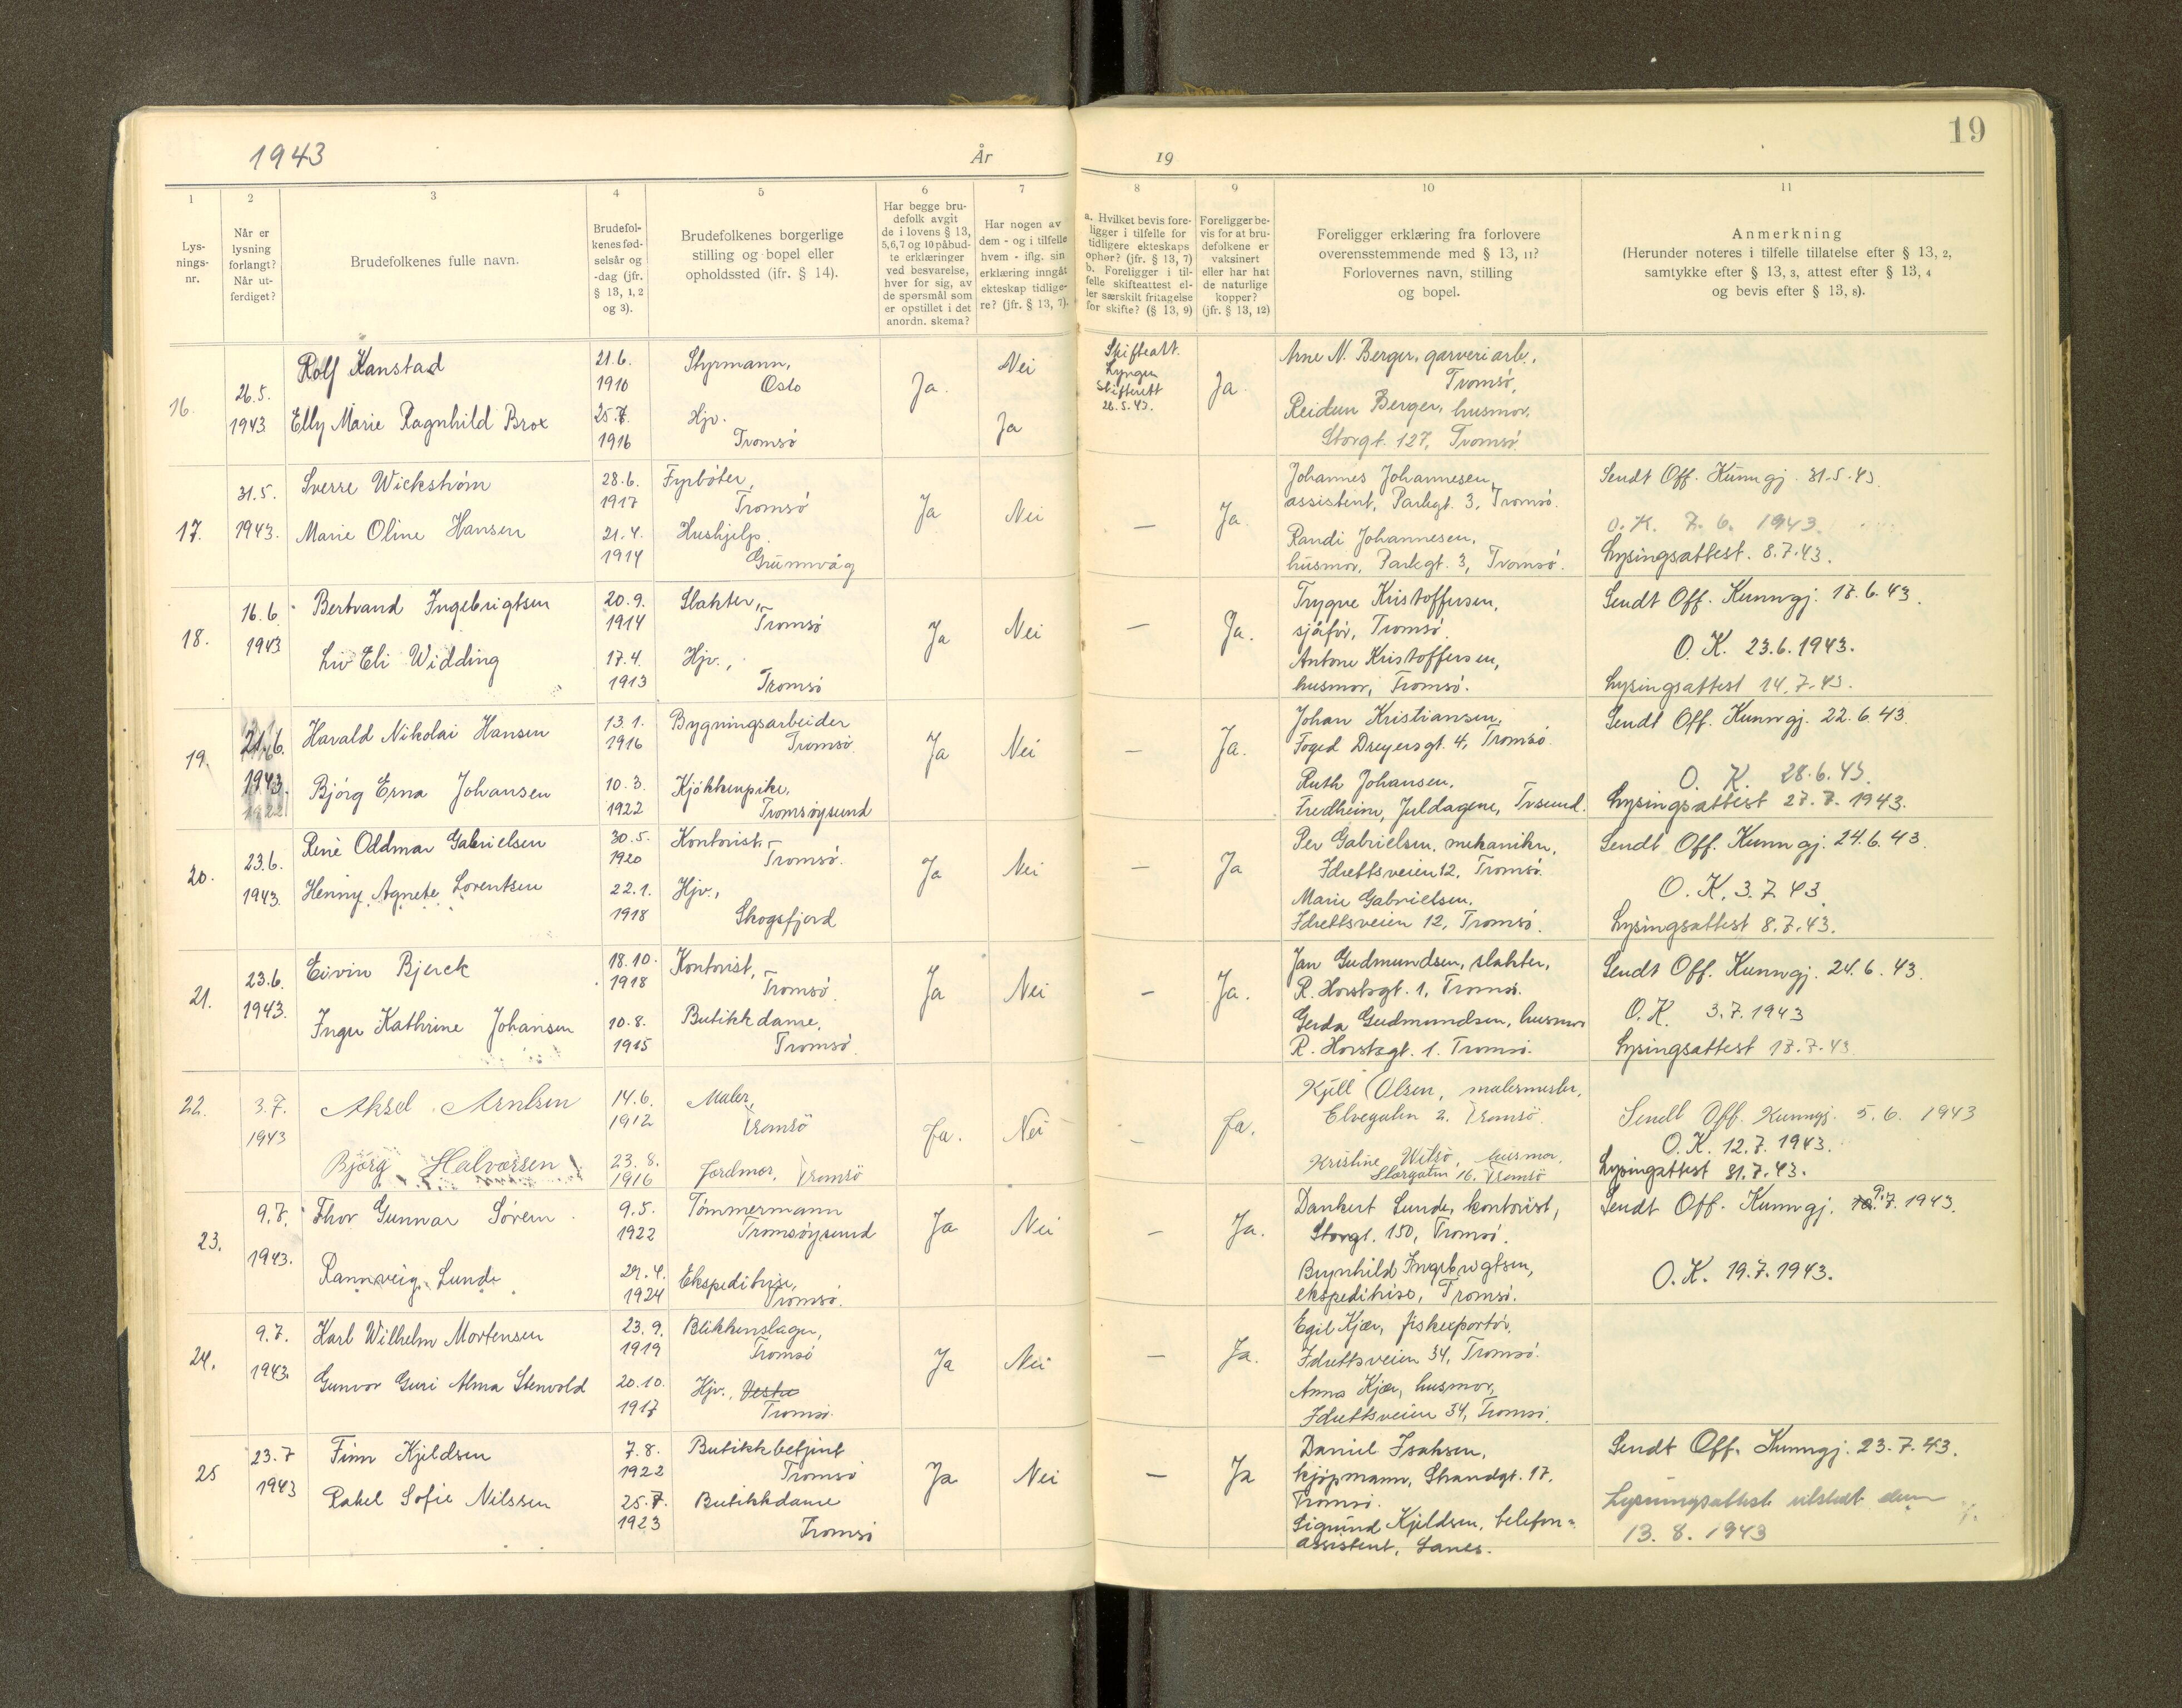 1943
År
19
19
1
Lys-
nings-
nr.
2
Når er
lysning
forlangt?
Når ut-
ferdiget?
3
Brudefolkenes fulle navn.
4
Brudefol-
kenes fød-
selsår og
-dag (jfr.
§ 13, 1, 2
og 3).
5
Brudefolkenes borgerlige
stilling og bopel eller
opholdssted (ifr. § 14).
6
Har begge bru-
defolk avgit
de i lovens § 13,
5,6,7 og 10 påbud-
te erklæringer
ved besvarelse,
hver for sig, av
de spørsmål som
er opstillet i det
anordn. skema?
7
Har nogen av
dem - og i tilfelle
hvem - iflg. sin
erklæring inngåt
ekteskap tidlige-
re? (jfr. § 13, 7).
8
a. Hvilket bevis fore-
ligger i tilfelle for
tidligere ekteskaps
ophør? (jfr. § 13, 7)
b. Foreligger i til-
felle skifteattest el-
ler særskilt fritagelse
for skifte? (§ 13, 9)
9
Foreligger be-
vis for at bru-
defolkene er
vaksinert
eller har hat
de naturlige
kopper?
(jfr. § 13, 12)
10
Foreligger erklæring fra forlovere
overensstemmende med § 13, 11?
Forlovernes navn, stilling
og bopel.
11
Anmerkning
(Herunder noteres i tilfelle tillatelse efter § 13, 2,
samtykke efter § 13, 3, attest efter § 13, 4
og bevis efter § 13, 8).
16.
26.5.
1943
Rolf Kanstad
Elly Marie Ragnhild Brox
21.6.
1910
25.7.
1916
Styrmann,
Oslo
Hjv.
Tromsø
Ja.
Nei
Ja
Skifteatt.
Lyngen
Skifterett
26.5.43.
Ja.
Arne N. Berger, garveriarb.,
Tromsø,
Reidun Berger, husmor,
Storgt. 127, Tromsø
17.
31.5.
1943.
Sverre Wickstrøm
Marie Oline Hansen
28.6.
1917
21.4.
1914
Fyrbøter,
Tromsø
Hushjelp.
Grunnvåg
Ja
Nei
—
Ja.
Johannes Johannesen,
assistent, Parkgt. 3, Tromsø.
Randi Johannesen,
husmor, Parkgt. 3, Tromsø.
Sendt Off. Kunngj. 31.5.43.
O.K. 7.6. 1943.
Lysingsattest. 8.7.43.
18.
16.6.
1943
Bertrand Ingebrigtsen
Liv Eli Widding
20.9.
1914
17.4.
1913
Slakter,
Tromsø
Hjv.,
Tromsø
Ja
Nei
—
Ja.
Trygve Kristoffersen,
sjåfør, Tromsø.
Antone Kristoffersen,
husmor, Tromsø.
Sendt Off. Kunngj. 17.6.43.
O.K. 23.6.1943.
Lysingsattest 14.7.43.
19.
21.6.
1943.
Harald Nikolai Hansen
Bjørg Erna Johansen
13.1.
1916
10.3.
1922
Bygningsarbeider
Tromsø.
Kjøkkenpike,
Tromsøysund
Ja
Nei
—
Ja.
Johan Kristiansen,
Foged Dreyersgt. 4, Tromsø.
Ruth Johansen,
Fredheim, Juldagene, Trsund.
Sendt Off. Kunngj. 22.6.43.
O. K. 28.6.43.
Lysingsattest 27.7.1943.
20.
23.6.
1943.
Renè Oddmar Gabrielsen
Henny Agnete Lorentsen
30.5.
1920
22.1.
1918
Kontorist,
Tromsø.
Hjv.,
Skogsfjord
Ja
Nei
—
Ja
Per Gabrielsen, mekaniker,
Idrettsveien 12, Tromsø.
Marie Gabrielsen,
Idrettsveien 12, Tromsø.
Sendt Off. Kunngj. 24.6.43.
O.K. 3.7.43.
Lysingsattest 8.7.43.
21.
23.6.
1943.
Eivin Bjerck
Inger Kathrine Johansen
18.10.
1918
10.8.
1915
Kontorist,
Tromsø.
Butikkdame,
Tromsø.
Ja
Nei
—
Ja.
Jan Gudmundsen, slakter,
R. Horstsgt. 1, Tromsø.
Gerda Gudmundsen, husmor
R. Horstsgt. 1. Tromsø.
Sendt Off. Kunngj. 24.6.43.
O.K. 3.7.1943
Lysingsattest 17.7.43.
22.
3.7.
1943
Aksel Arntsen
Bjørg Halvorsen
14.6.
1912
23.8.
1916
Maler,
Tromsø
Jordmor, Tromsø
Ja.
Nei
—
Ja.
Kjell Olsen, malermester,
Elvegaten 2. Tromsø.
Kristine Witsø, husmor,
Storgaten 16. Tromsø
Sendt Off. Kunngj. 5.6. 1943
O.K. 12.7.1943.
Lysingattest 31.7.43.
23.
9.7.
1943.
Thor Gunnar Sørem
Rannveig Lunde
9.5.
1922
29.4.
1924
Tømmermann
Tromsøysund
Ekspeditrise,
Tromsø.
Ja
Nei
—
Ja.
Dankert Lunde, kontorist,
Storgt. 150, Tromsø.
Brynhild Ingebrigtsen,
ekspeditrise, Tromsø.
Sendt Off. Kunngj. 9.7.1943.
O.K. 19.7.1943.
24.
9.7.
1943.
Karl Wilhelm Mortensen
Gunvor Guri Alma Stenvold
23.9.
1919
20.10.
1917
Blikkenslager,
Tromsø
Hjv., Vestre
Tromsø.
Ja
Nei
—
Ja.
Egil Kjær, fiskexportør,
Idrettsveien 34, Tromsø.
Anna Kjær, husmor,
Idrettsveien 34, Tromsø.
25
23.7
1943
Finn Kjeldsen
Rakel Sofie Nilssen
7.8.
1922
25.7.
1923
Butikkbetjent
Tromsø
Butikkdame
Tromsø
Ja
Nei
—
Ja
Daniel Isaksen,
kjøpmann, Strandgt. 17,
Tromsø.
Sigrund Kjeldsen, telefon-
assistent, Sanes.
Sendt Off. Kunngj. 23.7.43.
Lysningsattest utstedt den
13.8.1943